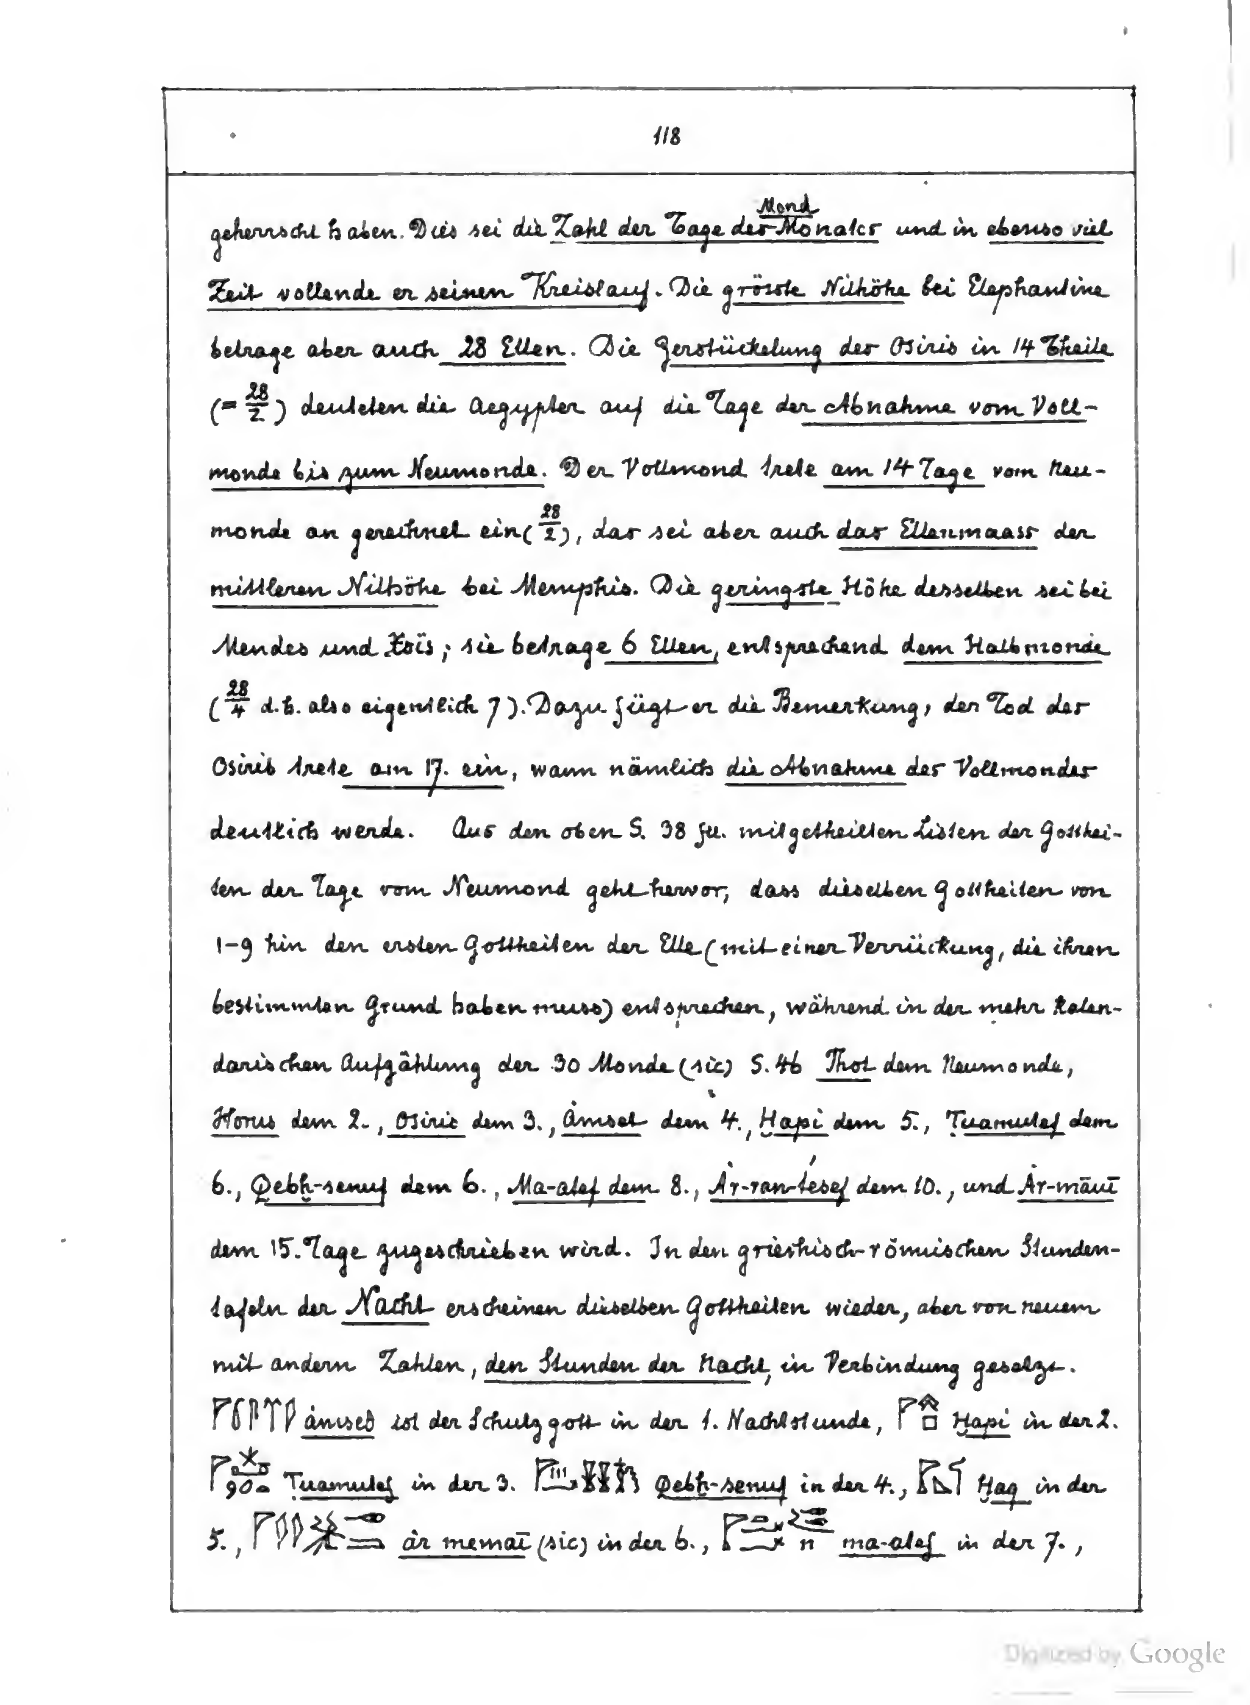 118
Mond
geherrscht haben. Dies sei die Zahl der Tage des Monates und in ebenso viel
Zeit vollende er seinen Kreislauf. Die grösste Nilhöhe bei Elephantine
betrage aber auch 28 Ellen. Die Zerstückelung des Osiris in 14 Theile
(= 28/2) deuteten die Aegypter auf die Tage der Abnahme vom Voll-
monde bis zum Neumonde. Der Vollmond trete am 14 Tage vom Neu-
monde an gerechnet ein (28/2), das sei aber auch das Ellenmaass der
mittleren Nilhöhe bei Memphis. Die geringste Höhe desselben sei bei
Mendes und Xoïs; sie betrage 6 Ellen, entsprechend dem Halbmonde
(28/4 d.h. also eigentlich 7). Dazu fügt er die Bemerkung, der Tod des
Osiris trete am 17. ein, wann nämlich die Abnahme des Vollmondes
deutlich werde. Aus den oben S. 38 fll. mitgetheilten Listen der Gotthei-
ten der Tage vom Neumond geht hervor, dass dieselben Gottheiten von
1-9 hin den ersten Gottheiten der Elle (mit einer Verrückung, die ihren
bestimmten Grund haben muss) entsprechen, während in der mehr kalen-
darischen Aufzählung der 30 Monde (sic) S. 46 Thot dem Neumonde,
Horus dem 2., Osiris dem 3., Ȧmset dem 4., Ḥapi dem 5., Ṭuamutef dem
6., Qebḥ-senuf dem 6., Ma-atef dem 8., Ȧr-ran-tesef dem 10., und Ȧr-māuï
dem 15. Tage zugeschrieben wird. In den griechisch-römischen Stunden-
tafeln der Nacht erscheinen dieselben Gottheiten wieder, aber von neuem
mit andern Zahlen, den Stunden der Nacht, in Verbindung gesetzt.
ȧmseθ ist der Schutzgott in der 1. Nachtstunde, Ḥapi in der 2.
Ṭuamutef in der 3. Qebḥ-senuf in der 4., Ḥaq in der
5., ȧr memaï (sic) in der 6., ma-atef in der 7.,
Digitized by Google